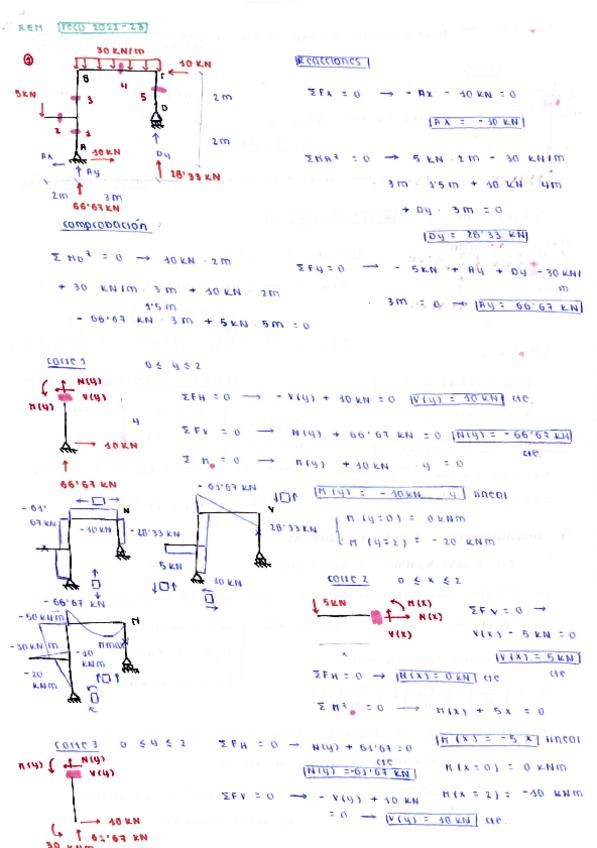 REM RECU 2022-23
1
30 KN/m
10 KN
B
C
4
5KN
3
5
D
2m
2
1
2m
A
10KN
Ax
Ay
Dy
28'33 KN
2m
3m
66'67 KN
Reacciones
ΣFx = 0 → - Ax - 10 KN = 0
Ax = -10 KN
ΣMA = 0 → 5 KN · 2m - 30 KN/m
3m · 1'5m + 10 KN · 4m
+ Dy · 3m = 0
Dy = 28'33 KN
ΣFy = 0 → - 5KN + Ay + Dy - 30 KN/
m
· 3m = 0 → Ay = 66'67 KN
comprobación
ΣMD = 0 → 10 KN · 2m
+ 30 KN/m · 3m + 10 KN 2m
1'5m
- 66'67 KN · 3m + 5 KN · 5m = 0
corte 1 0 ≤ y ≤ 2
N(y)
M(y)
V(y)
y
10 KN
66'67 KN
ΣFH = 0 → - V(y) + 10 KN = 0 V(y) = 10 KN cte.
ΣFV = 0 → N(y) + 66'67 KN = 0 N(y) = -66'67 KN
cte
ΣM = 0 → M(y) + 10 KN · y = 0
M(y) = - 10KN · y lineal
M (y=0) = 0 KNm
M (y=2) = - 20 KNm
- 61'
67 KN
N
-10 KN
- 28'33 KN
- 66'67 KN
- 61'67 KN
V
28'33 KN
5 KN
10 KN
-50KNm
M
-30KNm
-10
KNm
Mmax
-20
KNm
corte 2 0 ≤ x ≤ 2
5KN
M(x)
N(x)
V(x)
x
ΣFV = 0 →
V(x) - 5 KN = 0
V(x) = 5 KN
cte
ΣFH = 0 → N(x) = 0 KN cte
ΣM = 0 → M(x) + 5x = 0
M(x) = - 5 x lineal
M(x=0) = 0 KNm
M(x=2) = -10 KNm
corte 3 0 ≤ y ≤ 2
N(y)
M(y)
V(y)
10 KN
61'67 KN
30 KNm
ΣFH = 0 → N(y) + 61'67 = 0
cte
N(y) = -61'67 KN
ΣFV = 0 → - V(y) + 10 KN
= 0 → V(y) = 10 KN cte.